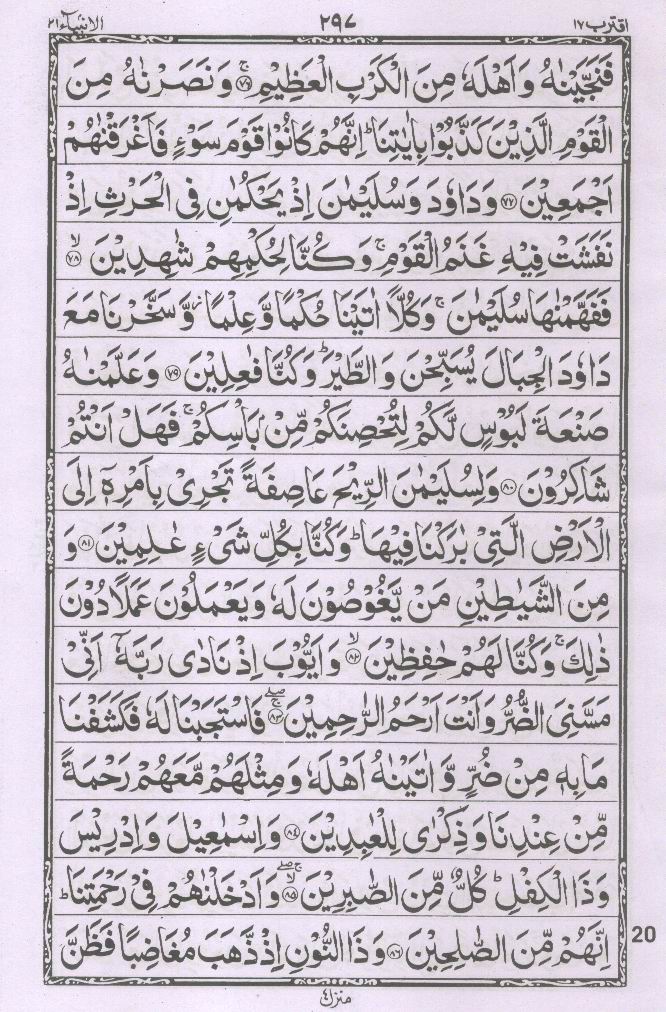 اقترب ١٧
٢٩٧
الانبيآء ٢١
فَنَجَّيْنٰهُ وَاَهْلَهٗ مِنَ الْكَرْبِ الْعَظِيْمِ ۚ‏﴿۷۶﴾ وَنَصَرْنٰهُ مِنَ
الْقَوْمِ الَّذِيْنَ كَذَّبُوْا بِاٰيٰتِنَا ؕ اِنَّهُمْ كَانُوْا قَوْمَ سَوْءٍ فَاَغْرَقْنٰهُمْ
اَجْمَعِيْنَ ﴿۷۷﴾ وَدَاوٗدَ وَسُلَيْمٰنَ اِذْ يَحْكُمٰنِ فِى الْحَرْثِ اِذْ
نَفَشَتْ فِيْهِ غَنَمُ الْقَوْمِ ۚ وَكُنَّا لِحُكْمِهِمْ شٰهِدِيْنَ ۙ﴿۷۸﴾
فَفَهَّمْنٰهَا سُلَيْمٰنَ ۚ وَكُلًّا اٰتَيْنَا حُكْمًا وَّعِلْمًا ؗ وَّسَخَّرْنَا مَعَ
دَاوٗدَ الْجِبَالَ يُسَبِّحْنَ وَالطَّيْرَ ؕ وَكُنَّا فٰعِلِيْنَ ﴿۷۹﴾ وَعَلَّمْنٰهُ
صَنْعَةَ لَبُوْسٍ لَّكُمْ لِتُحْصِنَكُمْ مِّنْۢ بَاْسِكُمْ ۚ فَهَلْ اَنْتُمْ
شَاكِرُوْنَ ﴿۸۰﴾ وَلِسُلَيْمٰنَ الرِّيْحَ عَاصِفَةً تَجْرِىْ بِاَمْرِهٖۤ اِلَى
الْاَرْضِ الَّتِىْ بٰرَكْنَا فِيْهَا ؕ وَكُنَّا بِكُلِّ شَىْءٍ عٰلِمِيْنَ ﴿۸۱﴾ وَ
مِنَ الشَّيٰطِيْنِ مَنْ يَّغُوْصُوْنَ لَهٗ وَيَعْمَلُوْنَ عَمَلًا دُوْنَ
ذٰلِكَ ۚ وَكُنَّا لَهُمْ حٰفِظِيْنَ ۙ﴿۸۲﴾ وَاَيُّوْبَ اِذْ نَادٰى رَبَّهٗۤ اَنِّىْ
مَسَّنِىَ الضُّرُّ وَاَنْتَ اَرْحَمُ الرّٰحِمِيْنَ ۚۖ﴿۸۳﴾ فَاسْتَجَبْنَا لَهٗ فَكَشَفْنَا
مَا بِهٖ مِنْ ضُرٍّ وَّاٰتَيْنٰهُ اَهْلَهٗ وَمِثْلَهُمْ مَّعَهُمْ رَحْمَةً
مِّنْ عِنْدِنَا وَذِكْرٰى لِلْعٰبِدِيْنَ ﴿۸۴﴾ وَاِسْمٰعِيْلَ وَاِدْرِيْسَ
وَذَا الْكِفْلِ ؕ كُلٌّ مِّنَ الصّٰبِرِيْنَ ۚۖ﴿۸۵﴾ وَاَدْخَلْنٰهُمْ فِىْ رَحْمَتِنَا ؕ
اِنَّهُمْ مِّنَ الصّٰلِحِيْنَ ﴿۸۶﴾ وَذَا النُّوْنِ اِذْ ذَّهَبَ مُغَاضِبًا فَظَنَّ
20
منزل ٤